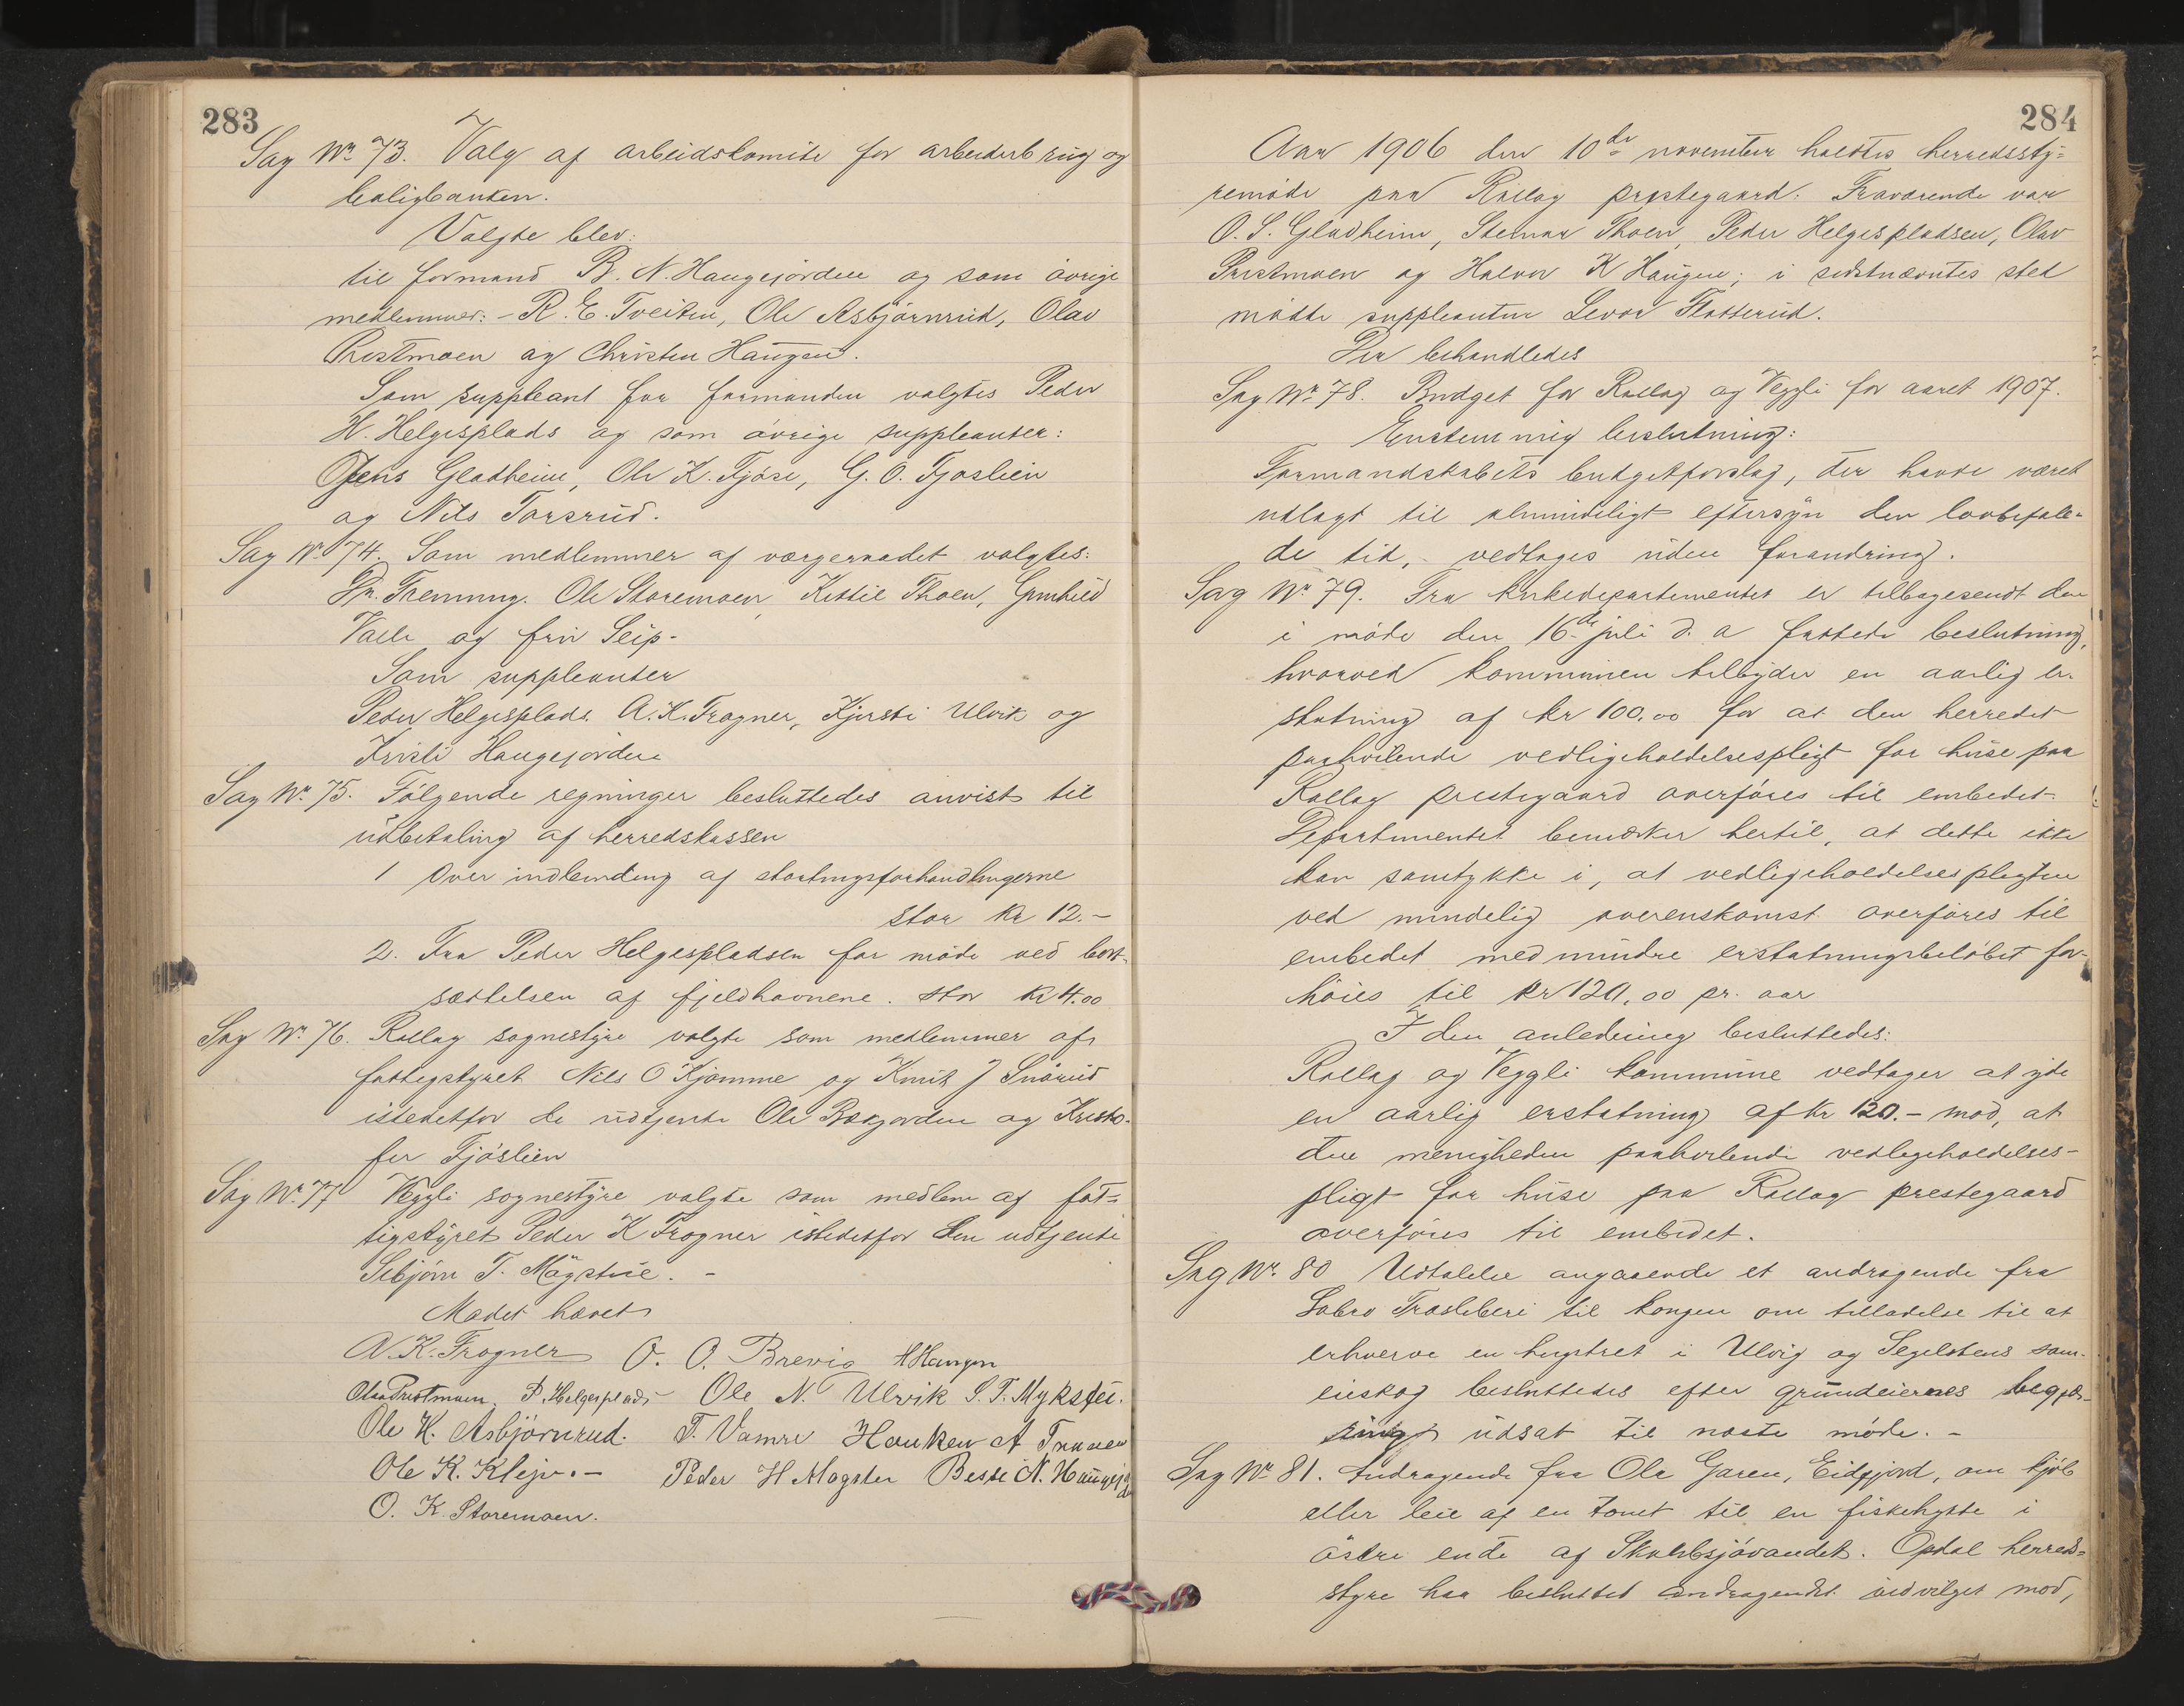 283
Sag Nr. 73. Valg af arbeidskomite for arbeiderbrug og
boligbanken.
Valgte blev:
til formand B. N. Haugejorden og som övrige
medlemmer: - R. E. Tveiten, Ole Asbjörnrud, Olav
Prestmoen og Christen Haugen.
Som suppleant for formanden valgtes Peder
H. Helgesplads og som övrige suppleanter:
Jens Gladheim, Ole K. Fjöse, G. O. Fjoslien
og Nils Torsrud.
Sag Nr. 74. Som medlemmer af vergeraadet valgtes:
Dr. Fremming. Ole Storemoen, Kittil Thoen, Gunhild
Valle og fru Seip.
Som suppleanter
Peder Helgesplads. A. K. Frogner, Kjersti Ulvik og
Kristi Haugejorden
Sag Nr. 75. Fölgende regninger besluttedes anvist til
udbetaling af herredskassen
1 Over indbinding af stortingsforhandlingerne
stor kr 12.-
2. Fra Peder Helgespladsen for möde ved bort-
sættelsen af fjeldhavnene. stor kr 4.00
Sag Nr. 76. Rollag sognestyre valgte som medlemmer af
fattigstyret Nils O Kjomme og Knut J Snörud
istedetfor de udtjente Ole Bekjorden og Kristo-
fer Fjöslien
Sag Nr. 77 Veggli sognestyre valgte som medlem af fat-
tigstyret Peder K Frogner istedetfor den udtjente
Sebjörn T. Mögstue. -
Mödet hævet
A. K. Frogner O. O. Brevig H Haugen
Olav Prestmoen. P. Helgesplads Ole N. Ulvik S. T. Mykstu.
Ole K. Asbjörnrud. T. Vamre Hauken A Traaen
Ole K. Kleiv. - Peder H Mogsten Besse N. Haugejorden
O. K. Storemoen.
284
Aar 1906 den 10de november holdtes herredssty-
remöde paa Rollag prestegaard. Fraværende var
O. S. Gladheim, Steinar Thoen, Peder Helgespladsen, Olav
Prestmoen og Halvor K Haugen; i sidstnævntes sted
mödte suppleanten Levor Flatterud.
Der behandledes
Sag Nr. 78. Budget for Rollag og Veggli for aaret 1907.
Enstemmig beslutning:
Formandskabets budgetforslag, der havde været
udlagt til almindeligt eftersyn den lovbefale-
de tid, vedtages uden forandring.
Sag Nr. 79. Fra kirkedepartementet er tilbagesendt den
i möde den 16de juli d. a fattede beslutning,
hvorved kommunen tilbyder en aarlig er-
statning af kr 100,00 for at den herredet
paahvilende vedligeholdelsespligt for huse paa
Rollag prestegaard overföres til embedet.
Departementet bemærker hertil, at dette ikke
kan samtykke i, at vedligeholdelsespligten
ved mindelig overenskomst overföres til
embedet med mindre erstatningsbelöbet for-
höies til kr 120,00 pr. aar
I den anledning besluttedes:
Rollag og Veggli kommune vedtager at yde
en aarlig erstatning af kr 120.- mod, at
den menigheden paahvilende vedligeholdelses-
pligt for huse paa Rollag prestegaard
overföres til embedet.
Sag Nr. 80 Udtalelse angaaende et andragende fra
Sabro Træsliberi til kongen om tilladelse til at
erhverve en hugstret i Ulvig og Segelstens sam-
eieskog besluttedes efter grundeiernes begjæ-
ring udsat til næste möde. -
Sag Nr. 81. Andragende fra Ola Garen, Eidfjord, om kjöb
eller leie af en tomt til en fiskehytte i
östre ende af Skulebsjövandet. Opdal herreds-
styre har besluttet andragendet indvilget mod,